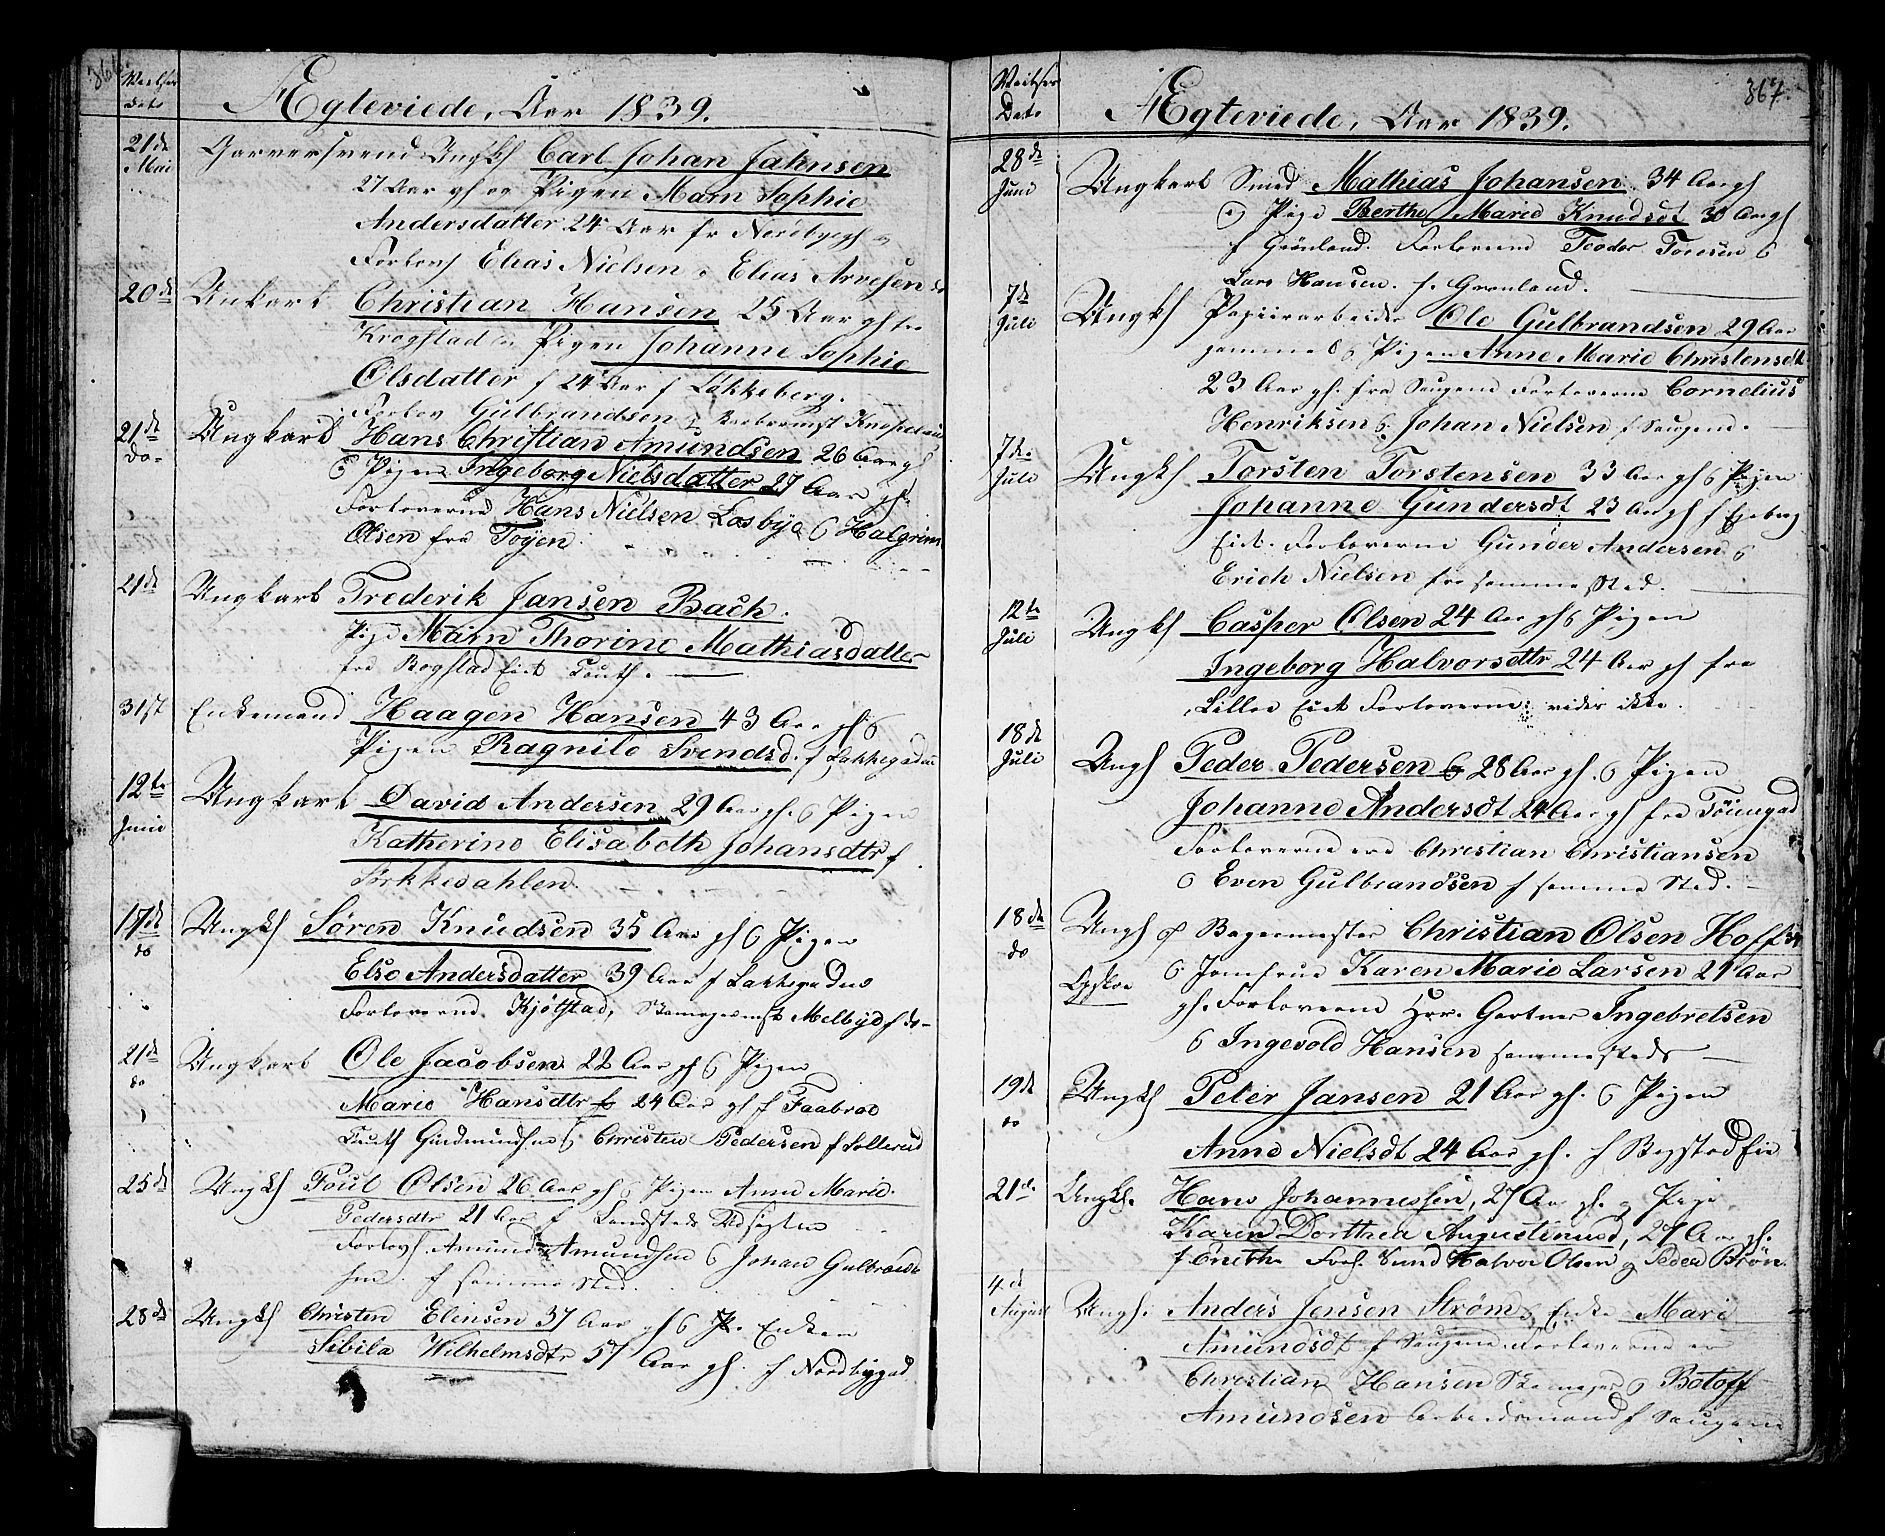 366
Vielses
Dato
Ægteviede, Aar 1839.
21de
Mai
Garversvend Ungk Carl Johan Jahnsen
27 Aar gl og Pigen Marn Sophie
Andersdatter 24 Aar fr Nordbygh
Forlov Elias Nielsen Elias Arvesen
20de
Unkarl Christian Hansen 25 Aar gl fra
Krogstad Pigen Johanne Sophie
Olsdatter f 24 Aar f Løkkeberg.
Forlov Gulbrandsen
21de
do
Ungkarl Hans Christian Amundsen 26 Aar gl
& Pigen Ingeborg Nielsdatter 27 Aar gl.
Forloverne Hans Nielsen Losbye & Halgrim
Olsen fra Tøyen.
21de
Ungkarl Frederik Jansen Bach.
Pige Marn Thorine Mathiasdatter
fra Bogstad Eiet
31st
Enkemand Haagen Hansen 43 Aar gl &
Pigen Ragnild Svendsd. f Lakkegaden
12te
Junii
Ungkarl David Andersen 29 Aar gl. & Pigen
Katherine Elisabeth Johansdtr f.
Sørkkedahlen.
17de
do
Ungk Søren Knudsen 35 Aar gl & Pigen
Else Andersdatter 39 Aar f Lakkegaden
Forloverne. Kjølstad, Skomagermst Melbye f do
21de
do
Ungkarl Ole Jacobsen 22 Aar gl & Pigen
Marie Hansdtr f 24 Aar gl f Faabroe
Gudmundsen & Christen Pedersen f Sollerud
25de
Ungk Poul Olsen 26 Aar gl & Pigen Anne Marie
Pedersdtr 21 Aar f Landstads Udsigten
Forlov Amund Amundsen & Johan Gulbrand
sen. f samme Sted.
28de
Ungk Christen Elensen 37 Aar gl & Enken
Sibila Wilhelmsdtr 57 Aar gl. f Nordbygad
367.
Vielses
Dato
Ægteviede, Aar 1839.
28de
Juni
Ungkarl Smed Mathias Johansen 34 Aar gl
& Pige Berthe Marie Knudsdt 30 Aar gl
f Grønland. Forloverne Teodor Toresen &
Lars Hansen. f. Grønland.
7de
Juli
Ungk Papiirarbeider Ole Gulbrandsen 29 Aar
gammel & Pigen Anne Marie Christensdt
23 Aar gl. fra Saugene Forloverne Cornelius
Henriksen & Johan Nielsen f Saugene.
7de
Juli
Ungk Torsten Torstensen 33 Aar gl & Pigen
Johanne Gundersdt 23 Aar gl f Egeberg
Eiet. Forloverne Gunder Andersen &
Erich Nielsen fra samme Sted.
12te
Juli
Ungk Casper Olsen 24 Aar gl & Pigen
Ingeborg Halvorsdttr 24 Aar gl fra
Lilloe Eiet Forloverne vides ikke.
18de
Juli
Ungk Peder Pedersen & 28 Aar gl. & Pigen
Johanne Andersdt 24 Aar gl fra Tøiengad
Forloverne ere Christian Christiansen
& Even Gulbrandsen f samme Sted.
18de
do
Ungk og Bagermester Christian Olsen Hoff
& Jomfrue Karen Marie Larsen 21 Aar
gl. Forloverne Hrr. Gartner Ingebretsen
& Ingevold Hansen sammesteds
19de
do
Ungk Peter Jansen 21 Aar gl. & Pigen
Anne Nielsdt 24 Aar gl. f Bogstad Eie
21de
Ungk. Hans Johannessen, 27 Aar gl. og Pige
Karen Dorthea Augustinusd, 27 Aar gl.
f Enerh. Forl. Svend Halvor Olsen og Peder Brøn.
4de
August
Ungk. Anders Jensen Strøm & Enke Mari
Amundsdt f Saugene Forloverne er
Christian Hansen Skomager & Botoff
Amundsen Arbeidsmand f Saugene